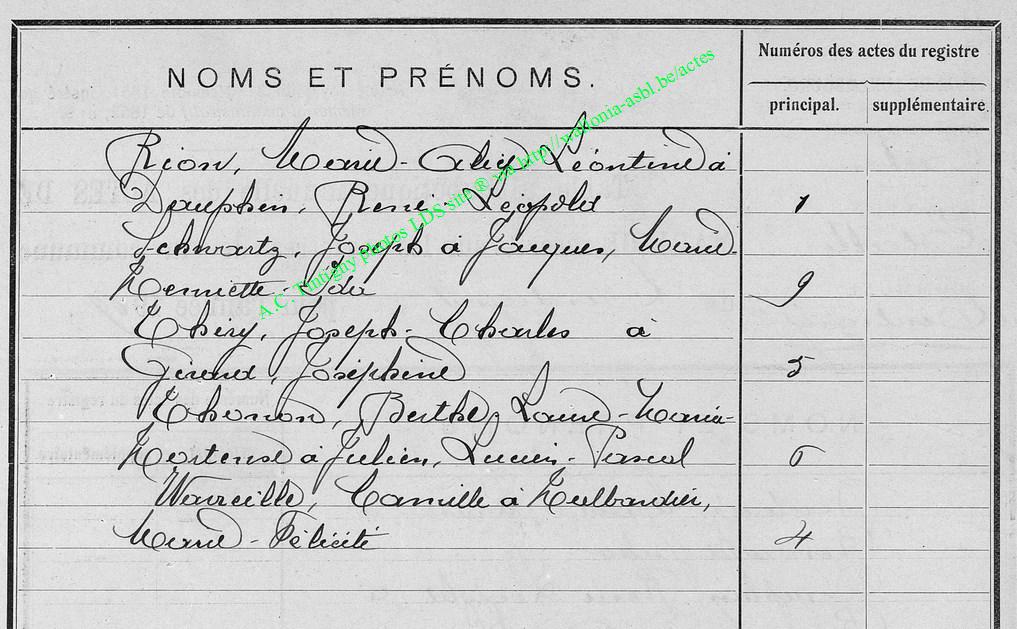 Numéros des actes du registre
NOMS ET PRÉNOMS.
principal. supplémentaire.
Rion, Marie-Alice Léontine à
Dauphin, René-Léopold 1
Schwartz, Joseph à Jacques, Marie-
Henriette-Ida 9
Thiry, Joseph-Charles à
Giraud, Joséphine 5
Thomon, Berthe, Laure-Maria-
Hortense à Julien, Lucien-Pascal 6
Wavreille, Camille à
Marie-Félicité 4
A.C. Tintigny photos LDS site ® via http://wallonia-asbl.be/actes